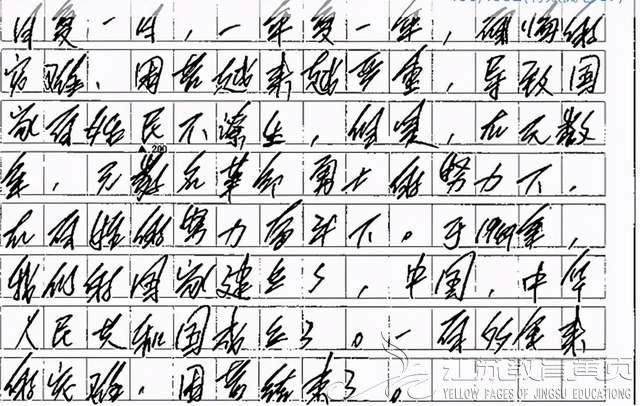 日复一日，一年复一年，的
灾难、困苦越来越严重，导致国
家百姓民不潦生，但是，在无数
年，无数名革命勇士的努力下，
在百姓的努力奋斗下。于1949年，
我们的国家建立了，中国，中华
人民共和国成立了。一年来
的灾难、困苦结束了。
280
江苏教育黄页
YELLOW PAGES OF JINGSU EDUCATIONG